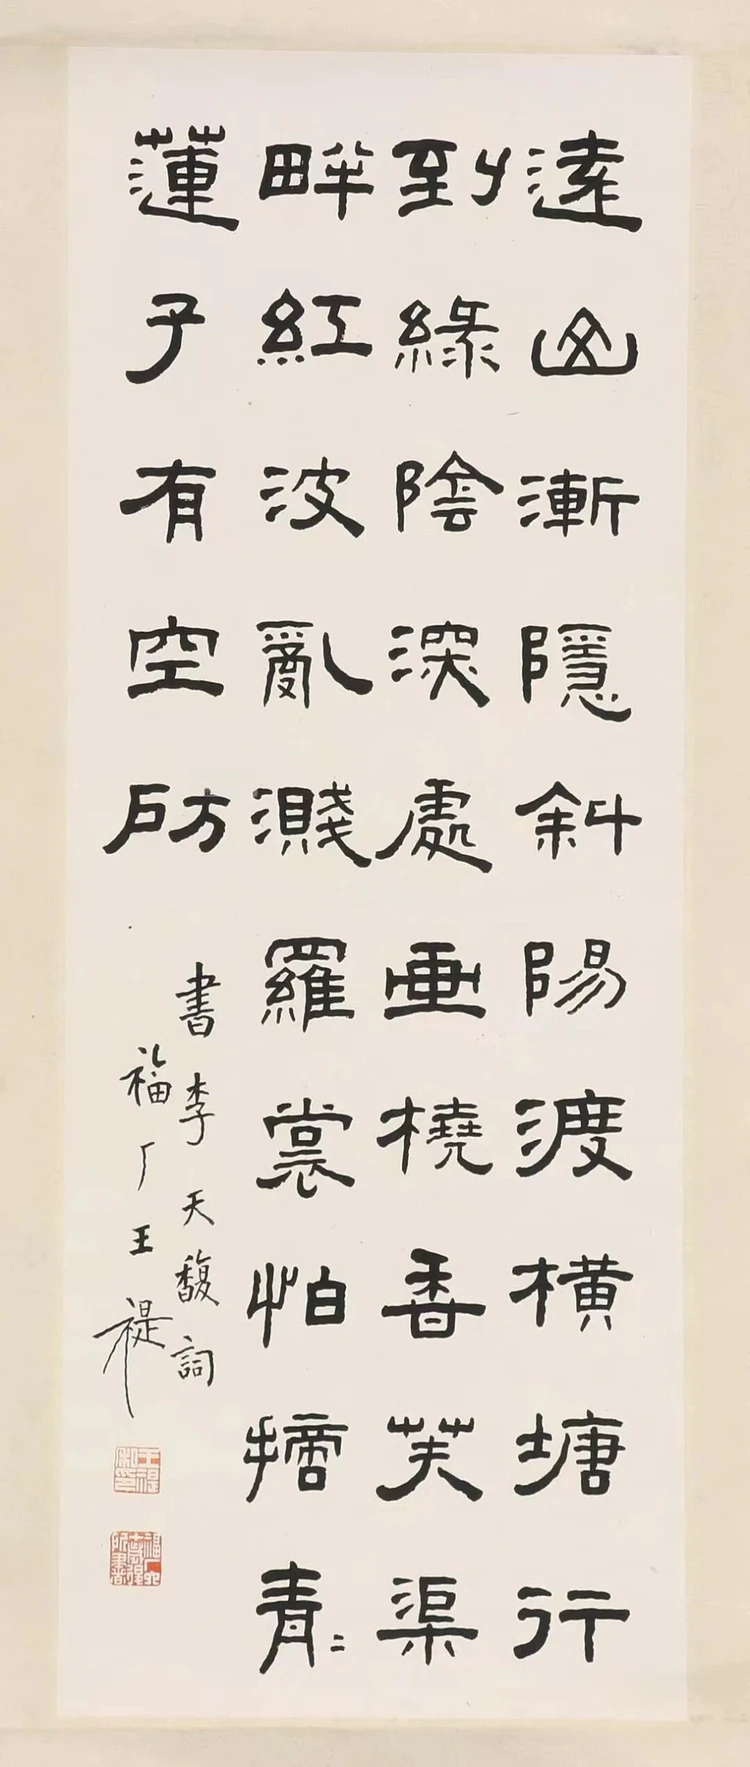 遠山漸隱斜陽渡橫塘行
到綠陰深處畫橈香芙渠
畔紅波亂濺羅裳怕摘青〻
蓮子有空房
書李天馥詞
福厂王禔
王禔私印